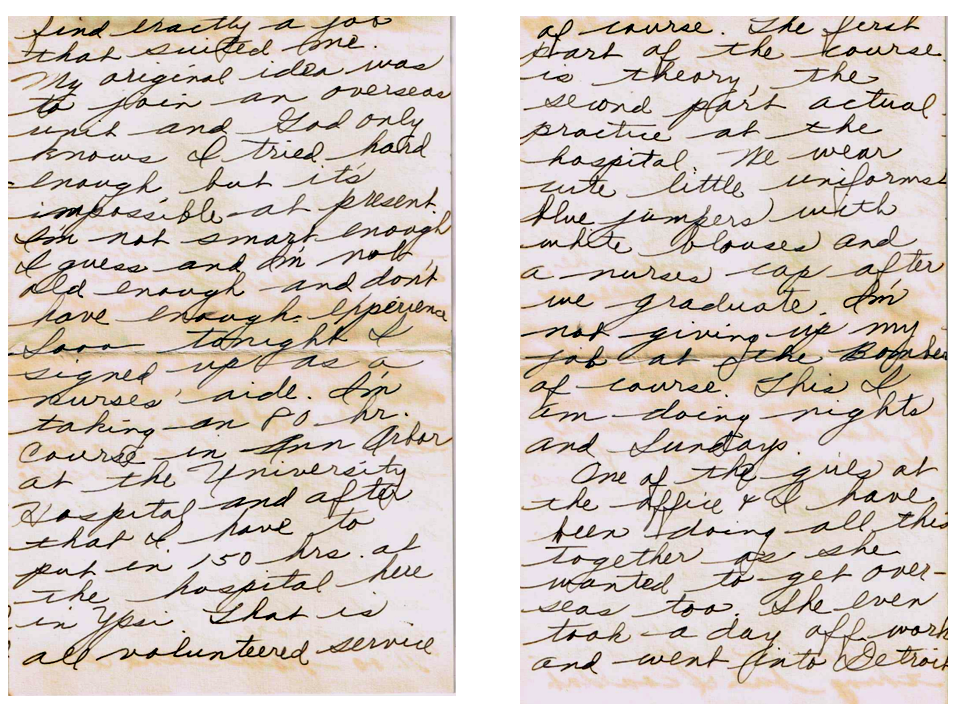 find exactly a job
that suited me.
My original idea was
to join an overseas
unit and God only
knows I tried hard
enough but it's
impossible at present.
I'm not smart enough
I guess and I'm not
old enough and don't
have enough experience
Sooo tonight I
signed up as a
nurses' aide. I'm
taking an 80 hr.
Course in Ann Arbor
at the University
Hospital and after
that I have to
put in 150 hrs. at
the hospital here
in Ypsi. That is
all volunteered service
of course. The first
part of the course
is theory, the
second part actual
practice at the
hospital. We wear
cute little uniforms
blue jumpers with
white blouses and
a nurses cap after
we graduate. I'm
not giving up my
job at the Bomber
of course. This I
am doing nights
and Sundays.
One of the girls at
the office & I have
been doing all this
together as she
wanted to get over-
seas too. She even
took a day off work
and went into Detroit